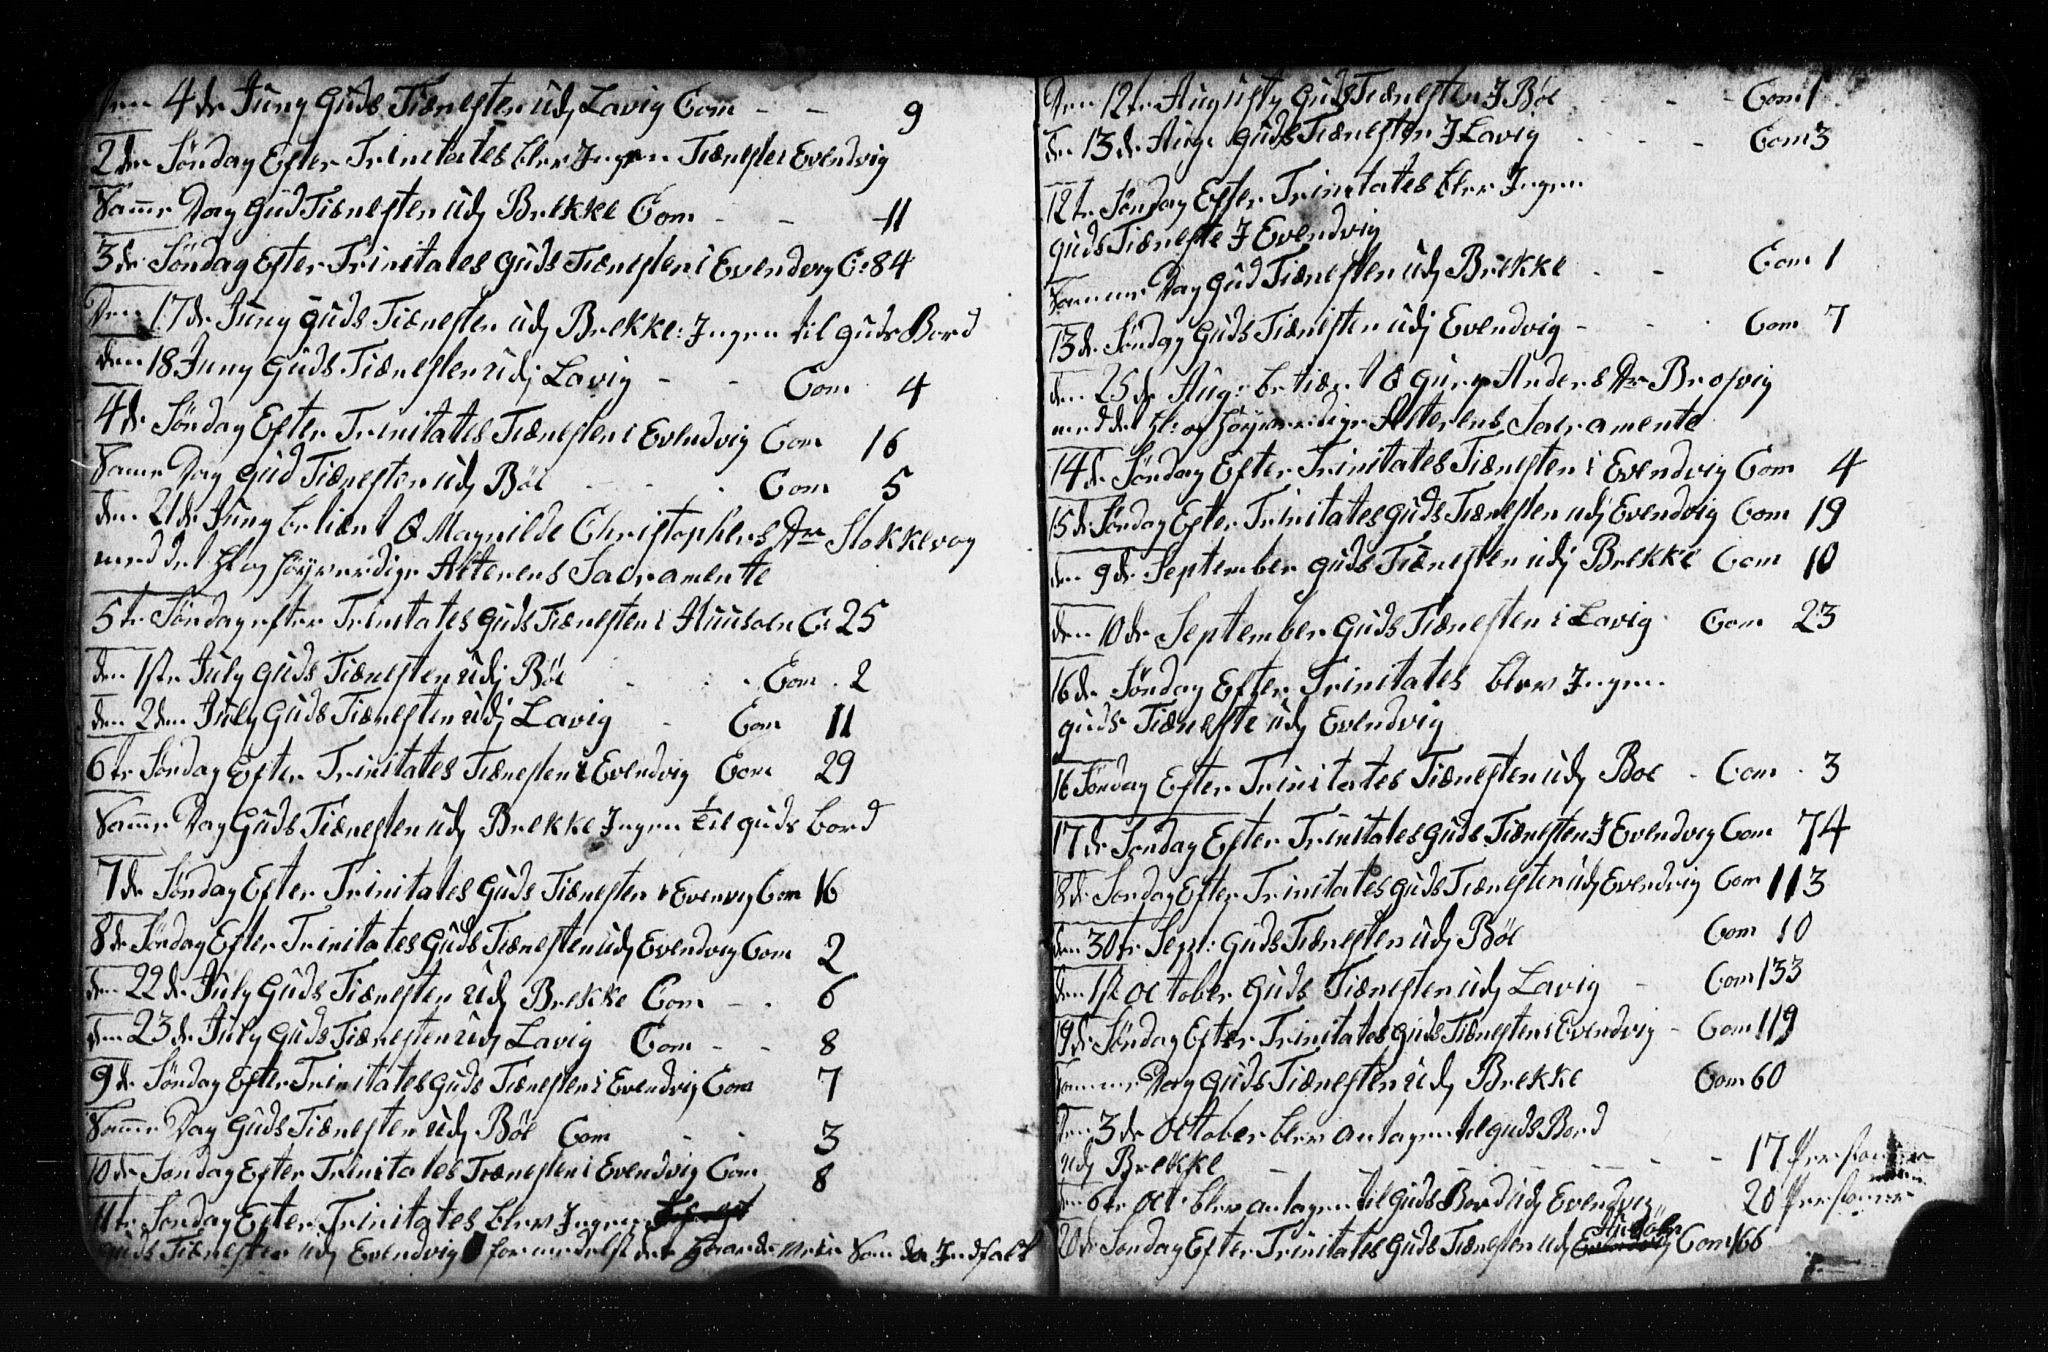 den 4de Juny Guds Tiænesten udj Lavig Com - - 9
2den Søndag Efter Trinitates blev Ingen Tiæneste i Evendvig
Samme Dag Gud Tiænesten udj Brekke Com - - 11
3de Søndag Efter Trinitates Guds Tiænesten i Evendvig C: 84
Den 17de Juny Guds Tiænesten udj Brekke: Ingen til Guds Bord
den 18 Juny Guds Tiænesten udj Lavig - - Com 4
4de Søndag Efter Trinitates Tiænesten i Evendvig Com 16
Samme Dag Gud Tiænesten udj Böe - - Com 5
den 21de Juny betient Q Magnilde Christophers Dtr Stokkevog
med det Hl og Høyverdige Alterens Sacramente
5te Søndag efter Trinitates Guds Tiænesten i Huusöen C: 25
den 1ste July Guds Tiænesten udj Böe - - Com 2
den 2den July Guds Tiænesten udj Lavig - Com 11
6te Søndag Efter Trinitates Tiænesten i Evendvig Com 29
Samme Dag Guds Tiænesten udj Brekke Ingen til Guds bord
7de Søndag Efter Trinitates Guds Tiænesten i Evenvig Com 16
8de Søndag Efter Trinitates Guds Tiænesten udj Evendvig Com 2
den 22de July Guds Tiænesten udj Brekke Com - - 6
den 23de July Guds Tiænesten udj Lavig Com - - 8
9de Søndag Efter Trinitates Guds Tiænesten i Evendvig Com 7
Samme Dag Guds Tiænesten udj Böe Com - - 3
10de Søndag Efter Trinitates Tiænesten i Evendvig Com 8
11te Søndag Efter Trinitates blev Ingen
Guds Tiænesten udj Evendvig formedelst det haarde Veir Som da Indfalt
Den 12te Augusty Guds Tiænesten I Böe - - - Com 1
den 13de Aug: Guds Tiænesten I Lavig - - - Com 3
12te Søndag Efter Trinitates blev Ingen
Guds Tiæneste I Evendvig
Samme Dag Gud Tiænesten udj Brekke - - Com 1
13de Søndag Guds Tiænisten udj Evendvig - - Com 7
den 25de Aug: betiænt Q Gury Anders Dtr Brosvig
med det Hl: og Höyverdige Alterens Sacramente
14de Søndag Efter Trinitates Tiænesten i Evendvig Com 4
15de Søndag Efter Trinitates Guds Tiænesten udj Evendvig Com 19
den 9de September Guds Tiænesten udj Brekke Com 10
den 10de September Guds Tiænesten i Lavig Com 23
16de Søndag Efter Trinitates blev Ingen
Guds Tiæneste udj Evendvig
16 Søndag Efter Trinitates Tiænesten udj Boe - Com 3
17de Søndag Efter Trinitates Guds Tiænesten I Evendvig Com 74
18de Søndag Efter Trinitates Guds Tiænesten udj Evendvig Com 113
den 30te Sept: Guds Tiænesten udj Böe Com 10
den 1ste October Guds Tiænesten udj Lavig - Com 133
19de Søndag Efter Trinitates Guds Tiænesten i Evendvig - Com 119
Samme Dag Guds Tiænesten udj Brekke Com 60
Den 3de October blev antagen til Guds Bord
udj Brekke - - - 17 Personer
den 6te Oct: blev antagen til Guds Bord udj Evendvig 20 Personer
20de Søndag Efter Trinitates Guds Tiænesten udj Evendvig Husöen Com 166